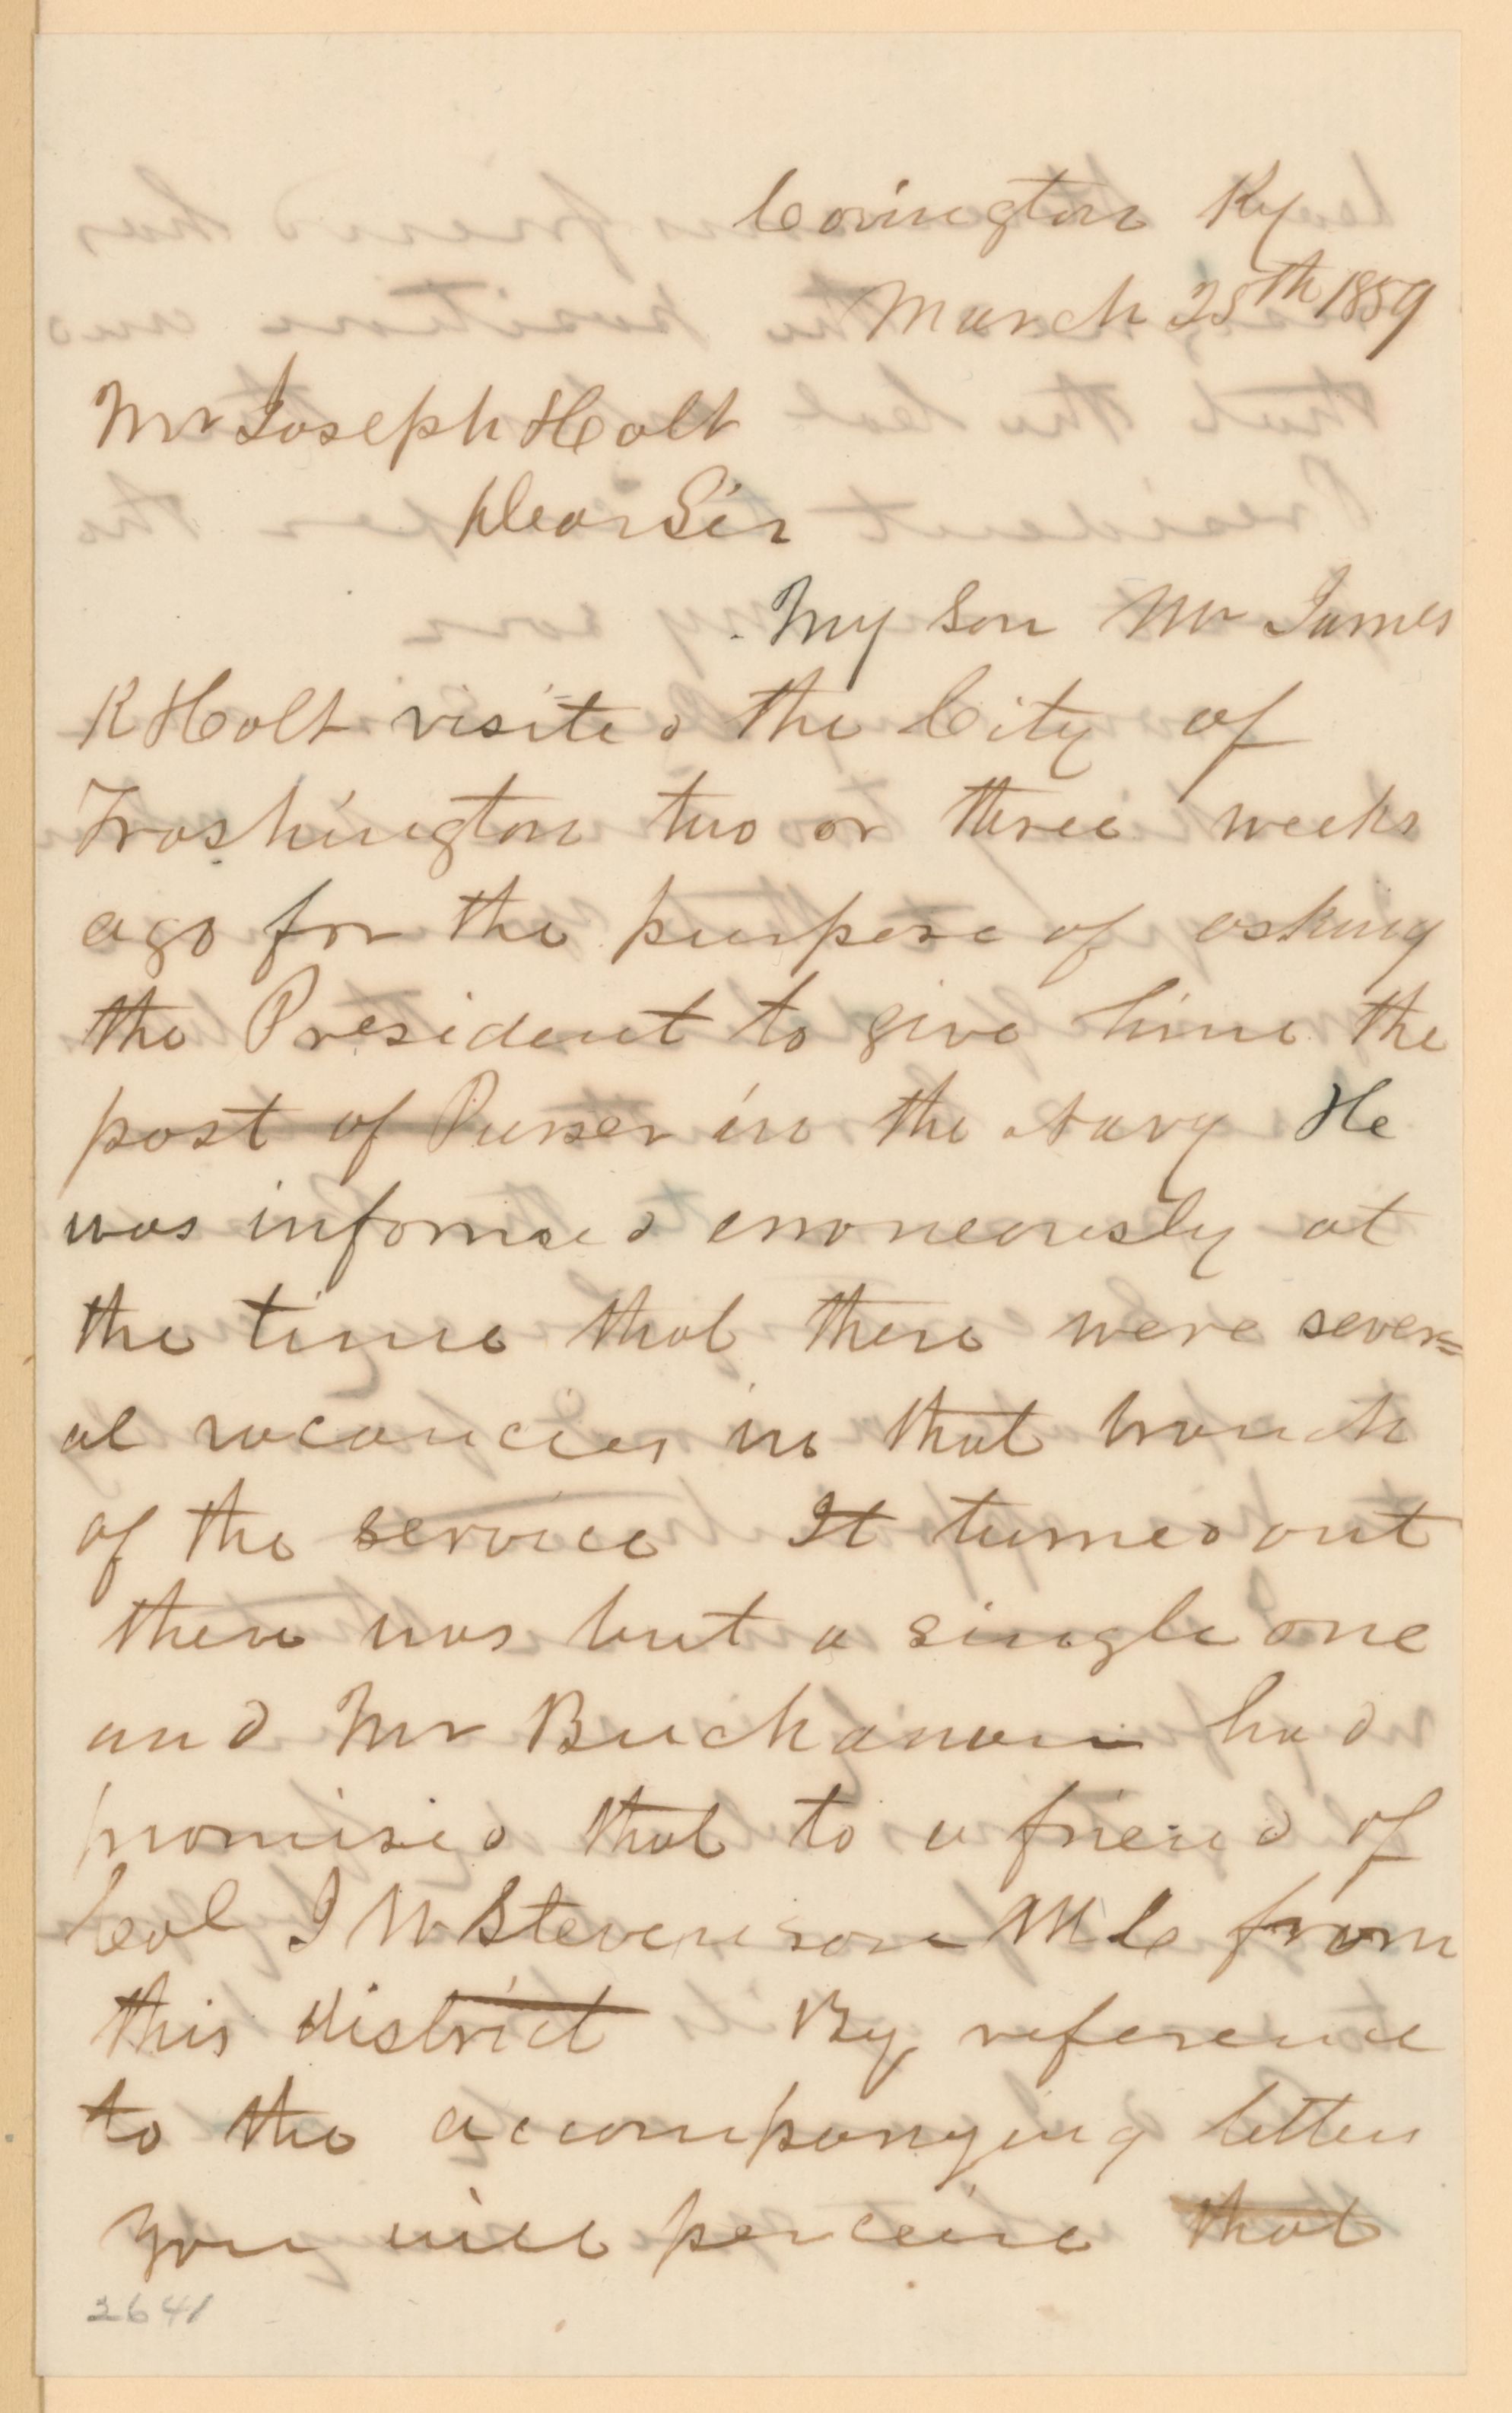 Covington Ky
March 25th 1859
Mr Joseph Holt
Dear Sir
My son Mr James
R Holt visited the City of
Washington two or three weeks
ago for the purpose of asking
the President to give him the
post of Purser in the Navy He
was informed erroneously at
the time that there were sever=
al vacancies in that branch
of the service It turned out
there was but a single one
and Mr Buchanan had
promised that to a friend of
Col J W Stevenson M C from
this district By reference
to the accompanying letter
you will perceive that
2641